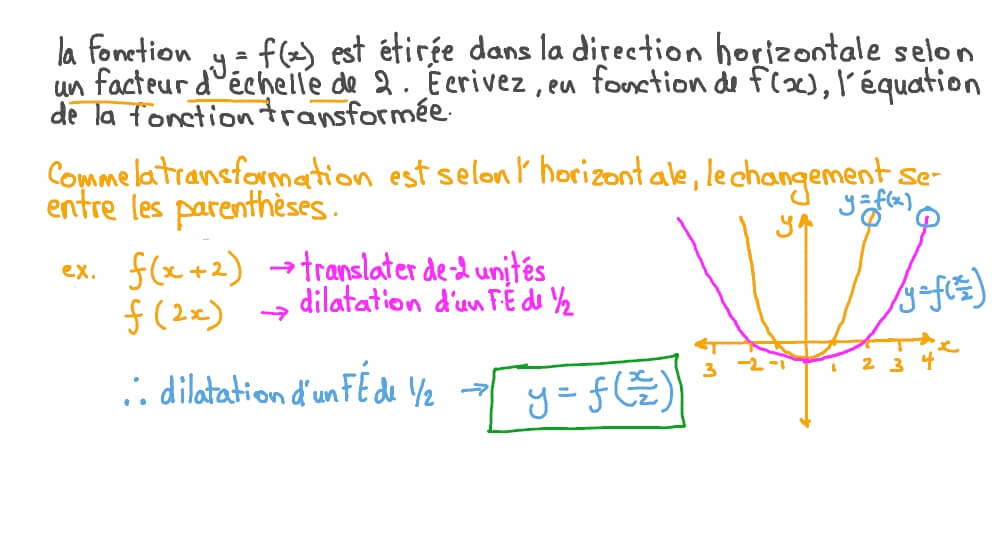 la fonction y = f(x) est étirée dans la direction horizontale selon
un facteur d'échelle de 2. Écrivez, en fonction de f(x), l'équation
de la fonction transformée.
Comme la transformation est selon l'horizontale, le changement se-
entre les parenthèses.
ex. f(x+2) → translater de -2 unités
f(2x) → dilatation d'un F.É de 1/2
∴ dilatation d'un FÉ de 1/2 → y = f(x/2)
y = f(x)
y
y = f(x/2)
3 -2 -1 1 2 3 4 x